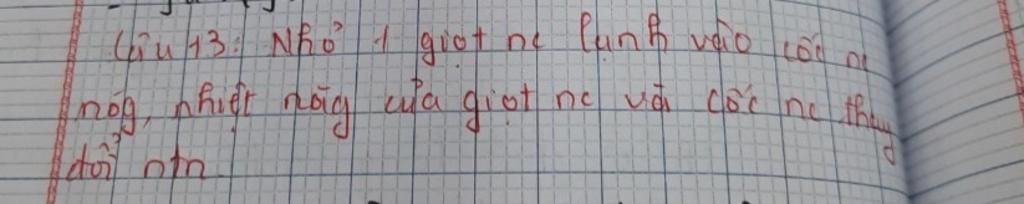 Câu 13: Nhỏ 1 giọt nc lạnh vào cốc nc
nóg, nhiệt năng của giọt nc và cốc nc thay
đổi ntn